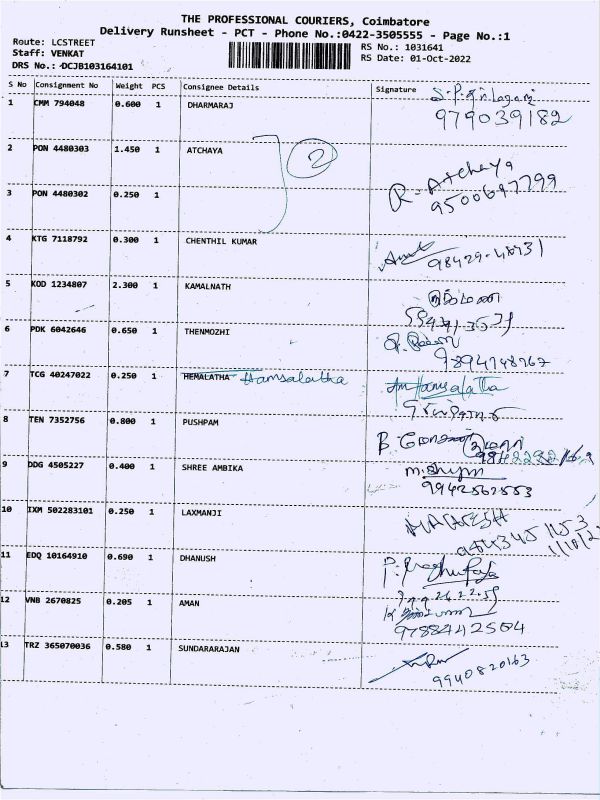 THE PROFESSIONAL COURIERS, Coimbatore
Delivery Runsheet - PCT - Phone No.:0422-3505555 - Page No.:1
Route: LCSTREET
RS No.: 1031641
Staff: VENKAT
RS Date: 01-Oct-2022
DRS No.: DCJB103164101
S No Consignment No Weight PCS Consignee Details Signature
1 CMM 794048 0.600 1 DHARMARAJ
979039182
2 PON 4480303 1.450 1 ATCHAYA 2 R. Atchaya
9500697799
3 PON 4480302 0.250 1
4 KTG 7118792 0.300 1 CHENTHIL KUMAR
5 KOD 1234807 2.300 1 KAMALNATH
6 PDK 6042646 0.650 1 THENMOZHI
9894748767
7 TCG 40247022 0.250 1 HEMALATHA Hamsalatha Hamsalatha
8 TEN 7352756 0.800 1 PUSHPAM
9 DDG 4505227 0.400 1 SHREE AMBIKA
9942562553
10 IXM 502283101 0.250 1 LAXMANJI
11 EDQ 10164910 0.690 1 DHANUSH
12 VNB 2670825 0.205 1 AMAN
9788442504
13 TRZ 365070036 0.580 1 SUNDARARAJAN
9940820163